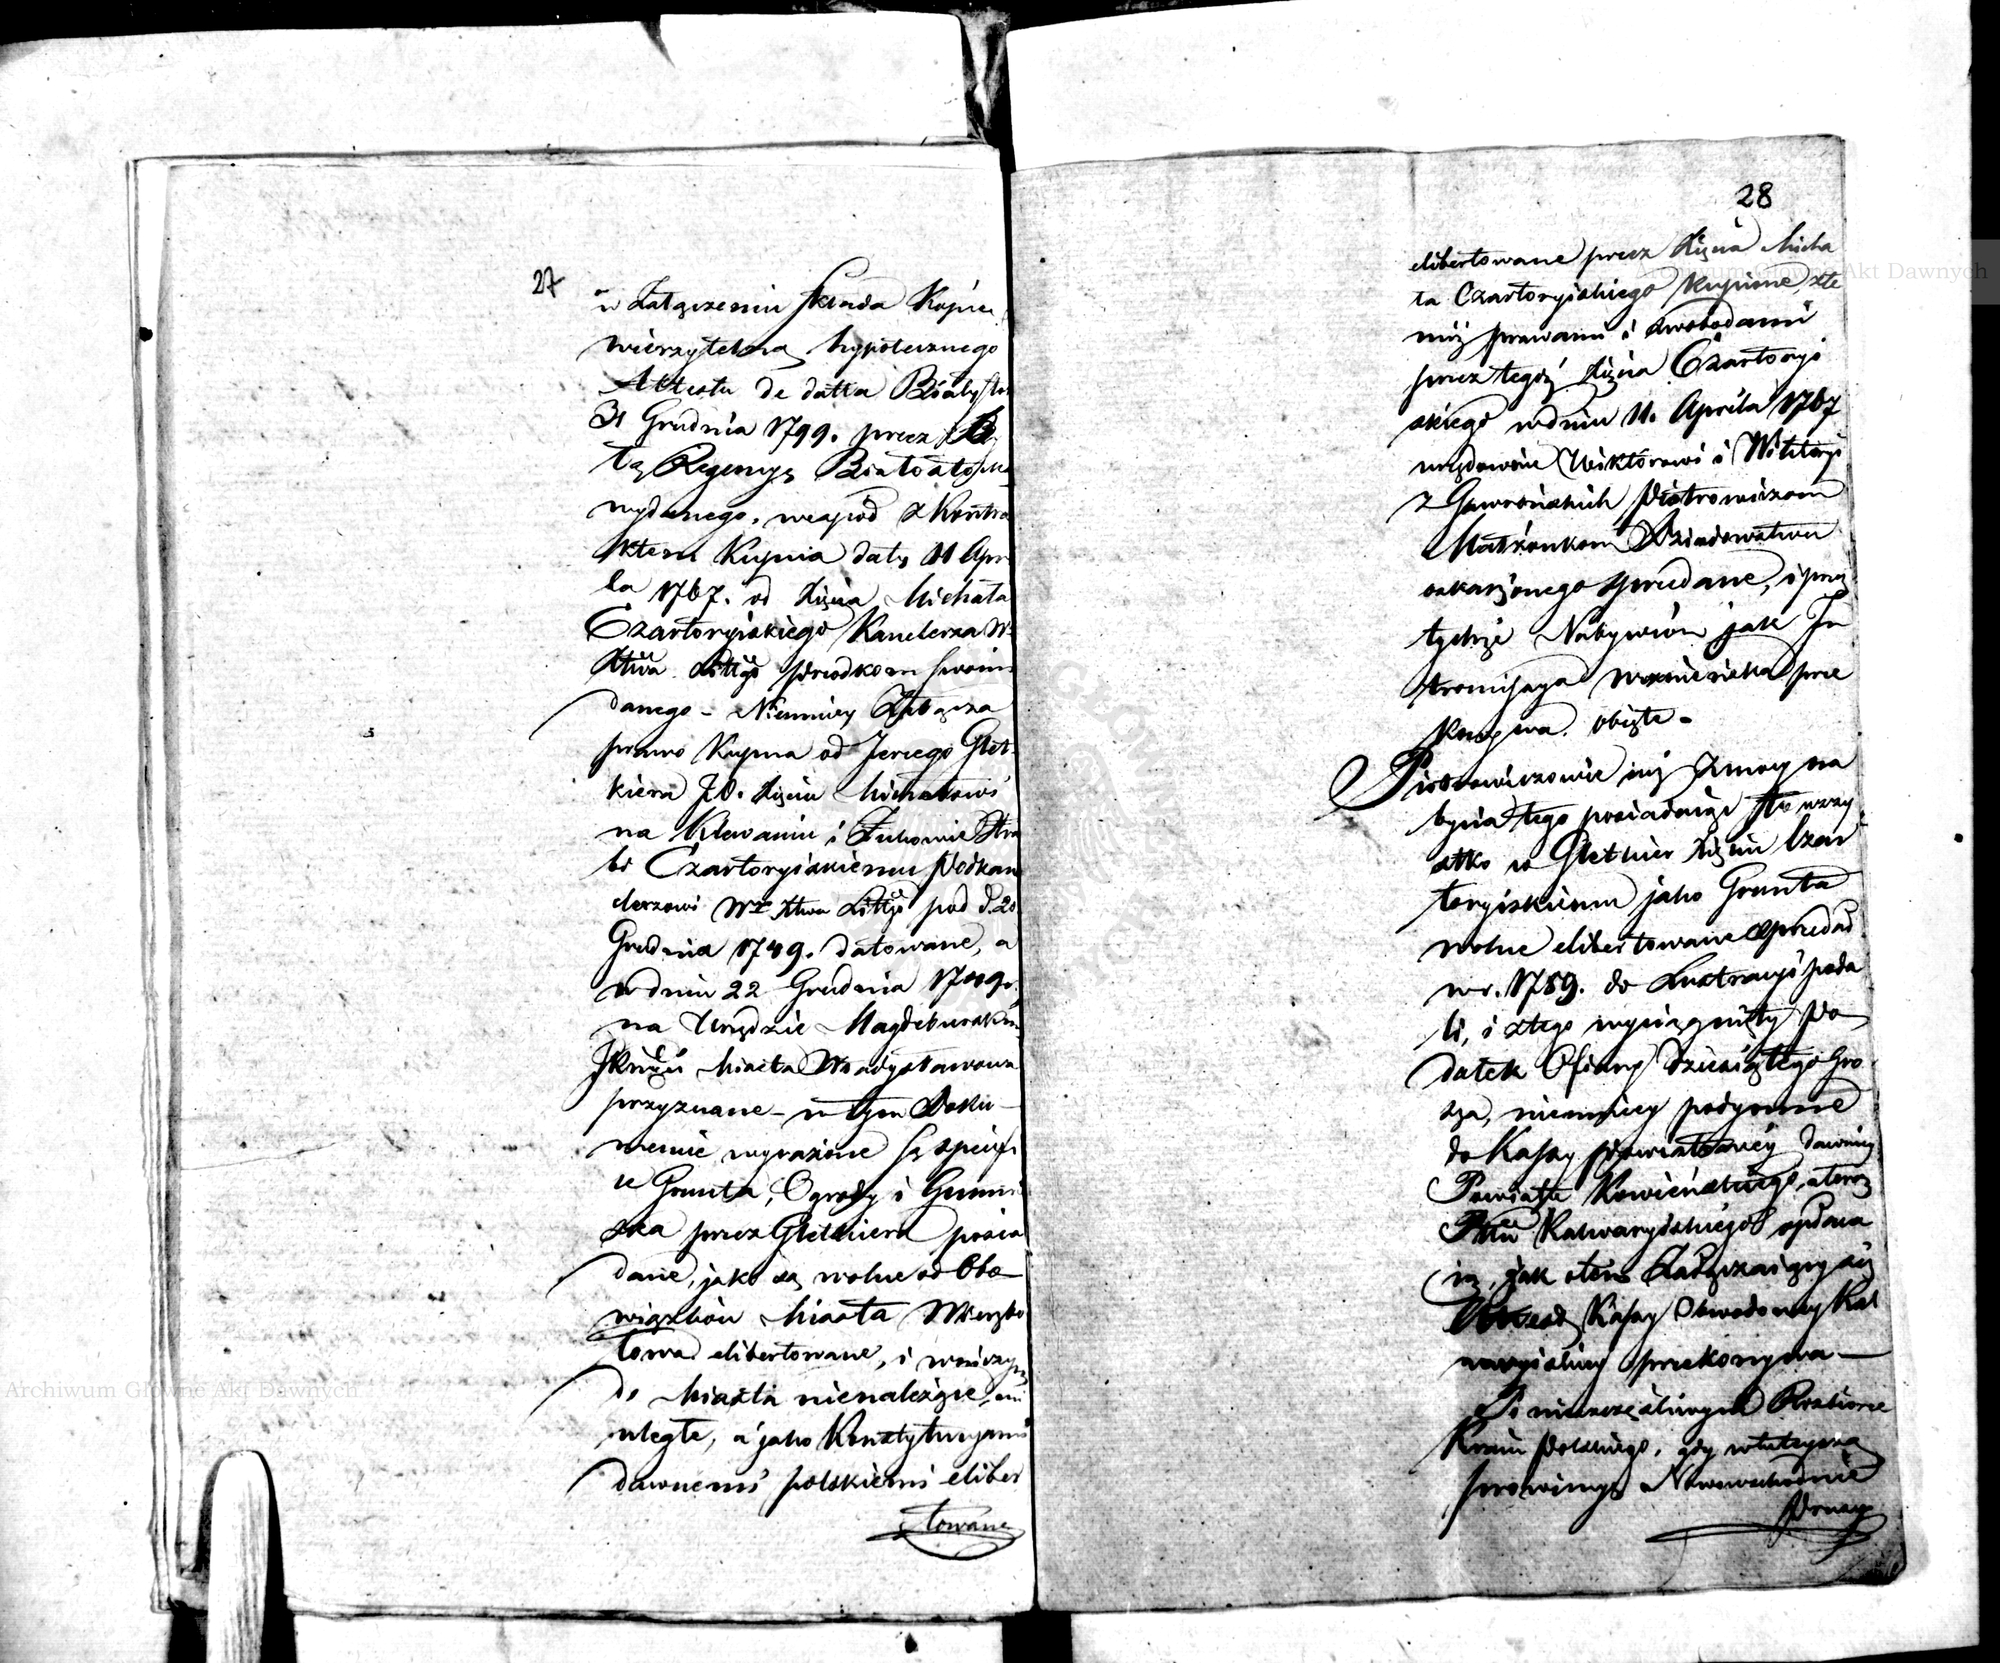 27
w Załączeniu składa Kopie
wierzytelną hypotecznego
Attestu de datta Białyst
31 Grudnia 1799. przez B
tą Regencyę Białosto
wydanego, wespół z Kontra
ktem Kupna daty 11 Apri
la 1767. od Xięcia Michała
Czartoryiskiego Kanclerza W
Xtwa Littgo przodkom swoim
danego – Niemniey Załącza
prawo Kupna od Jerzego Glet-
kiera JO. Xięciu Michałowi
na Klewaniu i Żukowie Hra
bi Czartoryiskiemu Podkan
clerzowi WXtwa Littgo pod d. 20
Grudnia 1749. datowane, a
w dniu 22 Grudnia 1749.
na Urzędzie Magdeburskim
Miasta Władysławowa
przyznane – w tym Doku-
mencie wyrażone są specifi
ce Grunta, Ogrody i Gumni
ska przez Gletkiera posia
dane, jako są wolne od Obo-
wiązków Miasta Wierzbo
łowa elibertowane, i w niczym
do Miasta nienależące, ani
uległe, a jako Konstytucyami
dawnemi polskiemi eliber
towane
28
elibertowane przez Xięcia Micha
ła Czartoryiskiego Kupione zte
miż prawami i swobodami
przez tegoż Xięcia Czartoryi
skiego w dniu 11. Aprila 1767
urzędownie Wiktorowi i
z Gaworskich Piotrowiczom
Małżonkom Dziadowstwu
oskarżonego sprzedane, i przez
tychże Nabywców jak In
tromissya woznieńska prze
konywa. objęte –
Piotrowiczowie iuż z mocy na
bycia tego posiadaiąc to wszy
stko co Gletkier Xięciu Czar
toryiskiemu jako Grunta
wolne elibertowane sprzedał
w r. 1789. do Lustracyi poda
li, i z tego wyciągnięty Po
datek Ofiary Dziesiątego Gro
sza, niemniey podymne
do Kassy Powiatowéy dawniey
Powiatu Kowieńskiego, a teraz
Pttu Kalwaryiskiego opłaca
ią, jak o tem Załączaiący się
Kassy Obwodowey Kal
waryiskiey przekonywa –
Po nieszczęśliwym Rozbiorze
Kraiu Polskiego, gdy w tuteyszą
prowincyę Nowowschodnie
Prussy